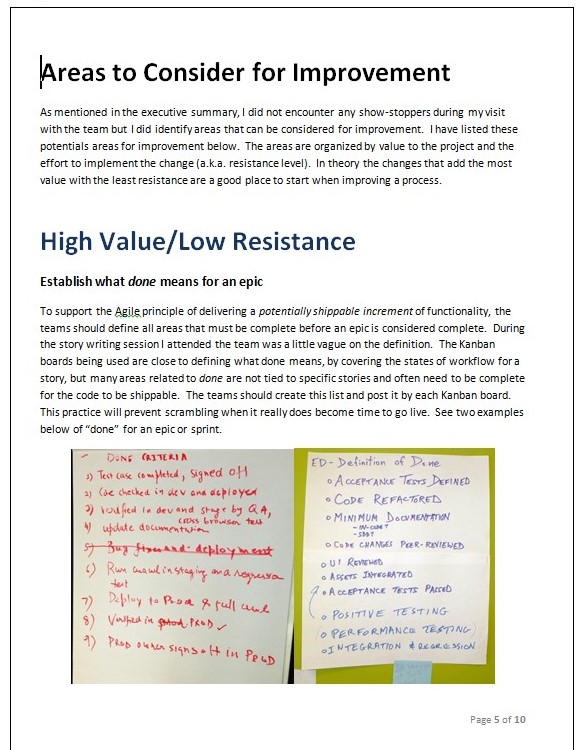 Areas to Consider for Improvement
As mentioned in the executive summary, I did not encounter any show-stoppers during my visit
with the team but I did identify areas that can be considered for improvement. I have listed these
potentials areas for improvement below. The areas are organized by value to the project and the
effort to implement the change (a.k.a. resistance level). In theory the changes that add the most
value with the least resistance are a good place to start when improving a process.
High Value/Low Resistance
Establish what done means for an epic
To support the Agile principle of delivering a potentially shippable increment of functionality, the
teams should define all areas that must be complete before an epic is considered complete. During
the story writing session I attended the team was a little vague on the definition. The Kanban
boards being used are close to defining what done means, by covering the states of workflow for a
story, but many areas related to done are not tied to specific stories and often need to be complete
for the code to be shippable. The teams should create this list and post it by each Kanban board.
This practice will prevent scrambling when it really does become time to go live. See two examples
below of “done” for an epic or sprint.
DONE CRITERIA
1) Test case completed, signed off
2) Code checked in dev and deployed
3) verified in dev and stage by QA,
cross browser test
4) update documentation
5) Bug fixes and deployment
6) Run crawl in staging and regression
test
7) Deploy to Prod & full crawl
8) Verified in PROD ✓
9) PROD owner signs off in PROD
ED - Definition of Done
o ACCEPTANCE TESTS DEFINED
o CODE REFACTORED
o MINIMUM DOCUMENTATION
- IN-CODE?
- SDD?
o CODE CHANGES PEER-REVIEWED
o UI REVIEWED
o ASSETS INTEGRATED
o ACCEPTANCE TESTS PASSED
o POSITIVE TESTING
o PERFORMANCE TESTING
o INTEGRATION & REGRESSION
Page 5 of 10